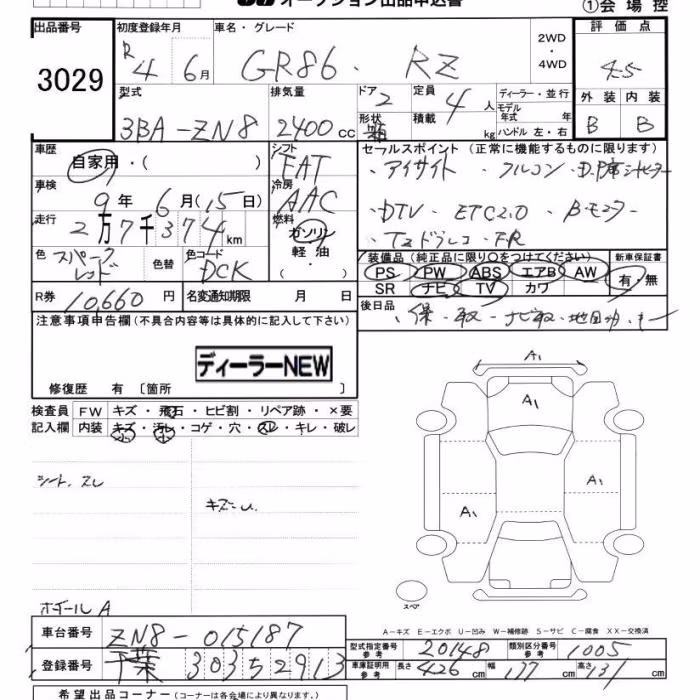 オークション出品申込書
①会場控
出品番号 3029
初度登録年月 R4 6月
車名・グレード GR86. RZ
2WD ・ 4WD
評価点 4.5
外装 内装
B B
型式 3BA-ZN8
排気量 2400cc
ドア 2
形状 箱
定員 4人
積載 kg
ディーラー・並行
モデル年式 年
ハンドル 左・右
車歴 自家用・( )
シフト FAT
セールスポイント(正常に機能するものに限ります)
・アイサイト ・フルコン
・DTV・ ETC2.0 ・Bモニター
・Tzドラレコ・FR
車検 9年 6月(15日)
冷房 AAC
走行 2万7千374km
燃料 ガソリン 軽油 ・ ( )
色 スパークレッド 色替
色コード DCK
装備品(純正品に限り○をつけてください)
PS PW ABS エアB AW
SR ナビ TV カワ
新車保証書 有・無
R券 10,660円
名変通期限 月 日
後日品 ・保・取・ナビ取
注意事項申告欄(不具合内容等は具体的に記入して下さい)
ディーラーNEW
修復歴 有〔箇所 〕
検査員記入欄
FW キズ・飛石・ヒビ割・リペア跡・×要
内装 キズ・汚レ・コゲ・穴・スレ・キレ・破レ
シート、スレ
キズ
ホイールA
A1
A1
A1
A1
スペア
A−キズ E−エクボ U−凹み W−補修跡 S−サビ C−腐食 XX−交換済
車台番号 ZN8-015187
登録番号 千葉 303 5 2913
型式指定番号 参考 20148
類別区分番号 参考 1005
車庫証明用 参考 長さ 426cm 幅 177cm 高さ 131cm
希望出品コーナー(コーナーは各会場により異なります。)